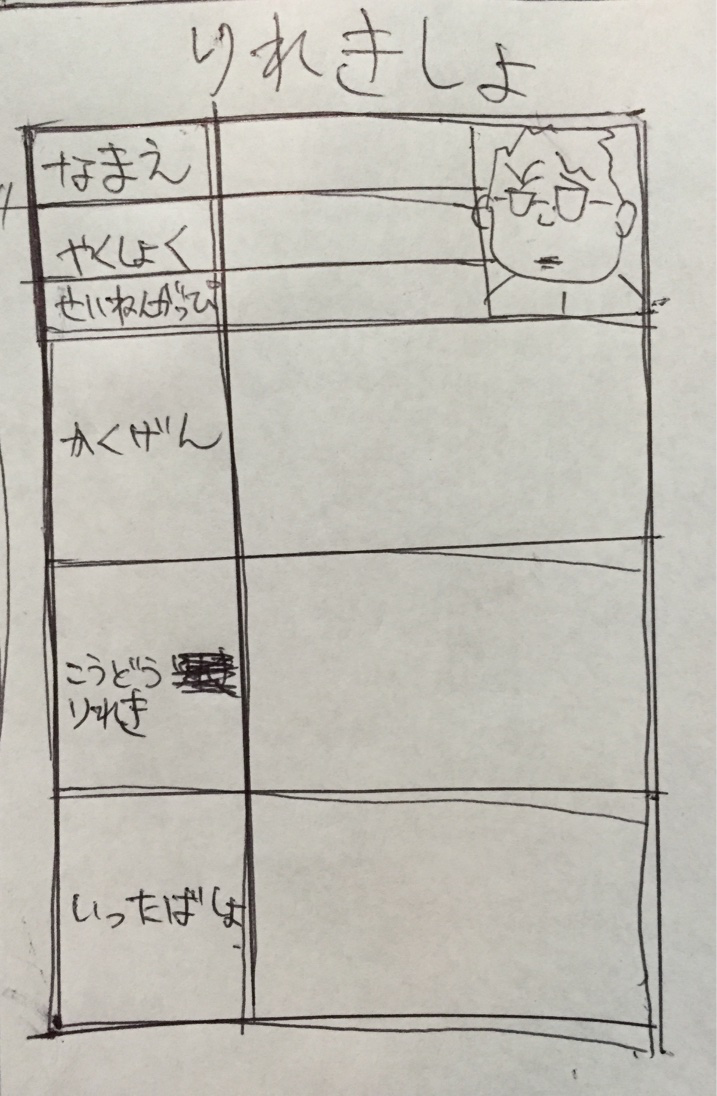 りれきしょ
なまえ
やくしょく
せいねんがっぴ
かくげん
こうどう
りれき
いったばしょ